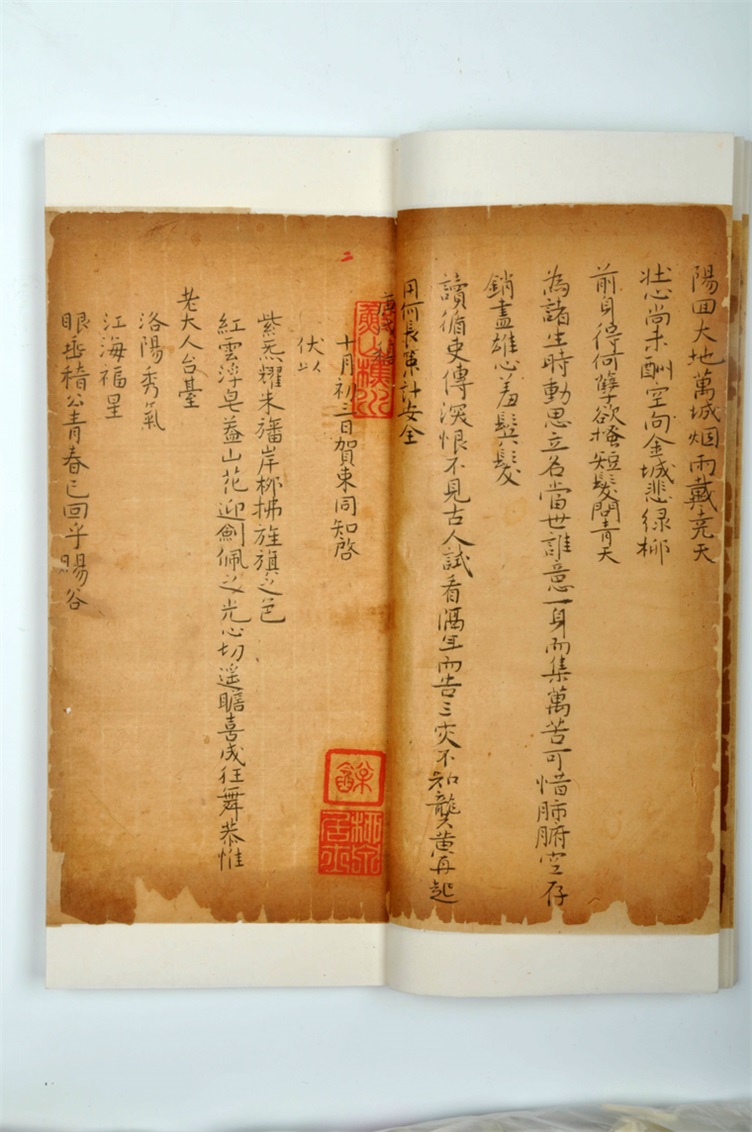 陽回大地萬城烟雨戴堯天
壯心尚未酬空向金城悲绿柳
前身得何孽欲搔短髮問青天
為諸生時動思立名當世誰意一身而集萬苦可惜肺腑空存
銷盡雄心羞鬂髮
讀循吏傳深恨不見古人試看滿年而告三灾不知龔黄再起
用何長策計安全
十月初三日賀東同知啓
伏以
紫炁耀朱旛岸柳拂旌旗之色
紅雲浮皂葢山花迎劍佩之光心切遥瞻喜成狂舞恭惟
老大人台臺
洛陽秀氣
江海福星
眼垂稽公青春已回乎暘谷
二